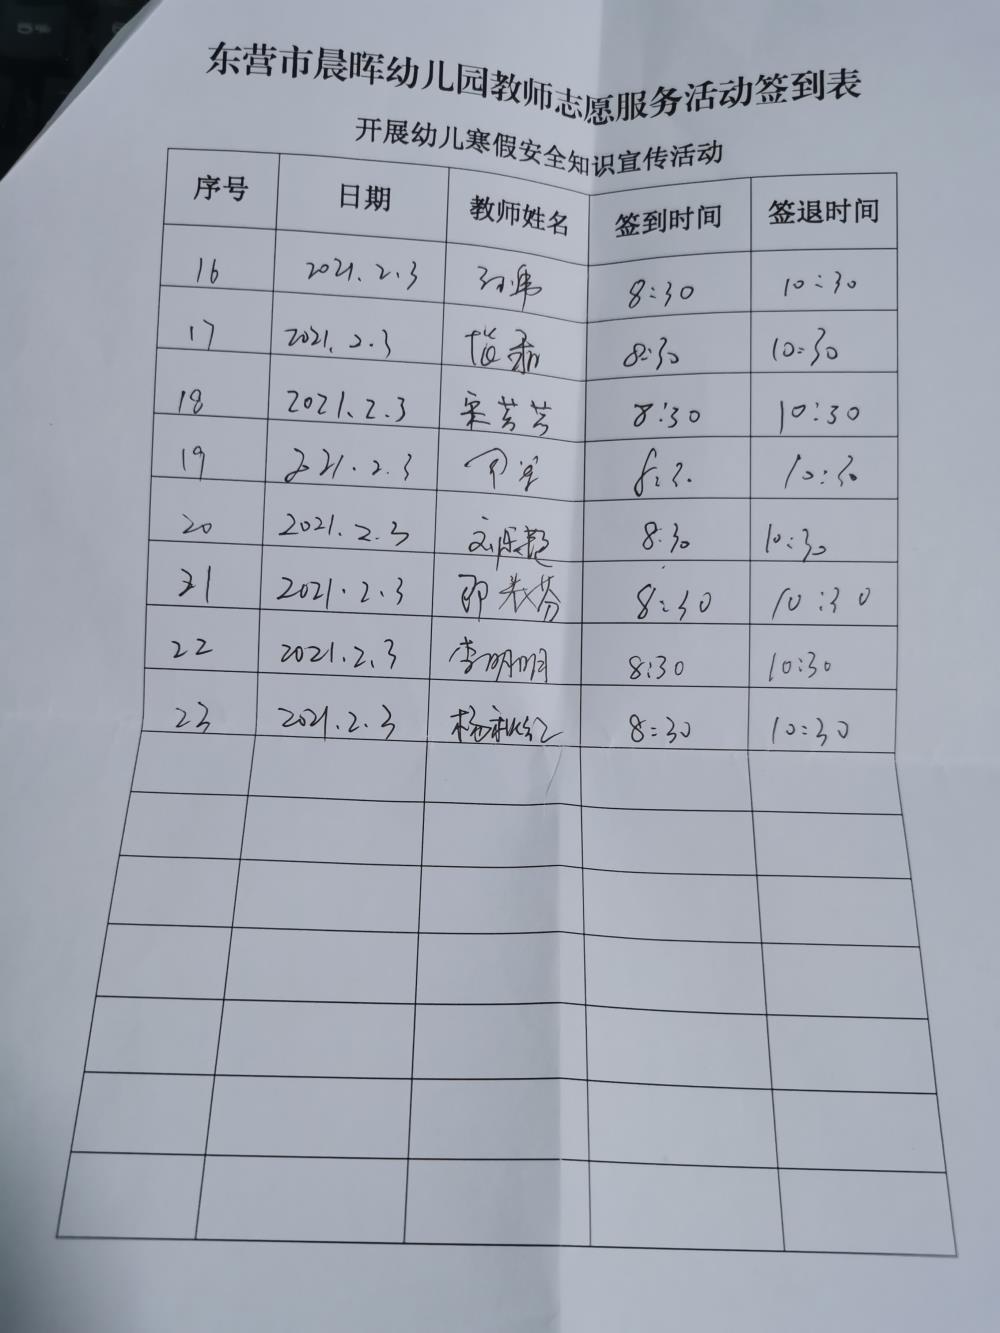 东营市晨晖幼儿园教师志愿服务活动签到表
开展幼儿寒假安全知识宣传活动
序号 日期 教师姓名 签到时间 签退时间
16 2021.2.3 8:30 10:30
17 2021.2.3 8:30 10:30
18 2021.2.3 8:30 10:30
19 2021.2.3 8:30 10:30
20 2021.2.3 8:30 10:30
21 2021.2.3 8:30 10:30
22 2021.2.3 李明明 8:30 10:30
23 2021.2.3 杨秋红 8:30 10:30